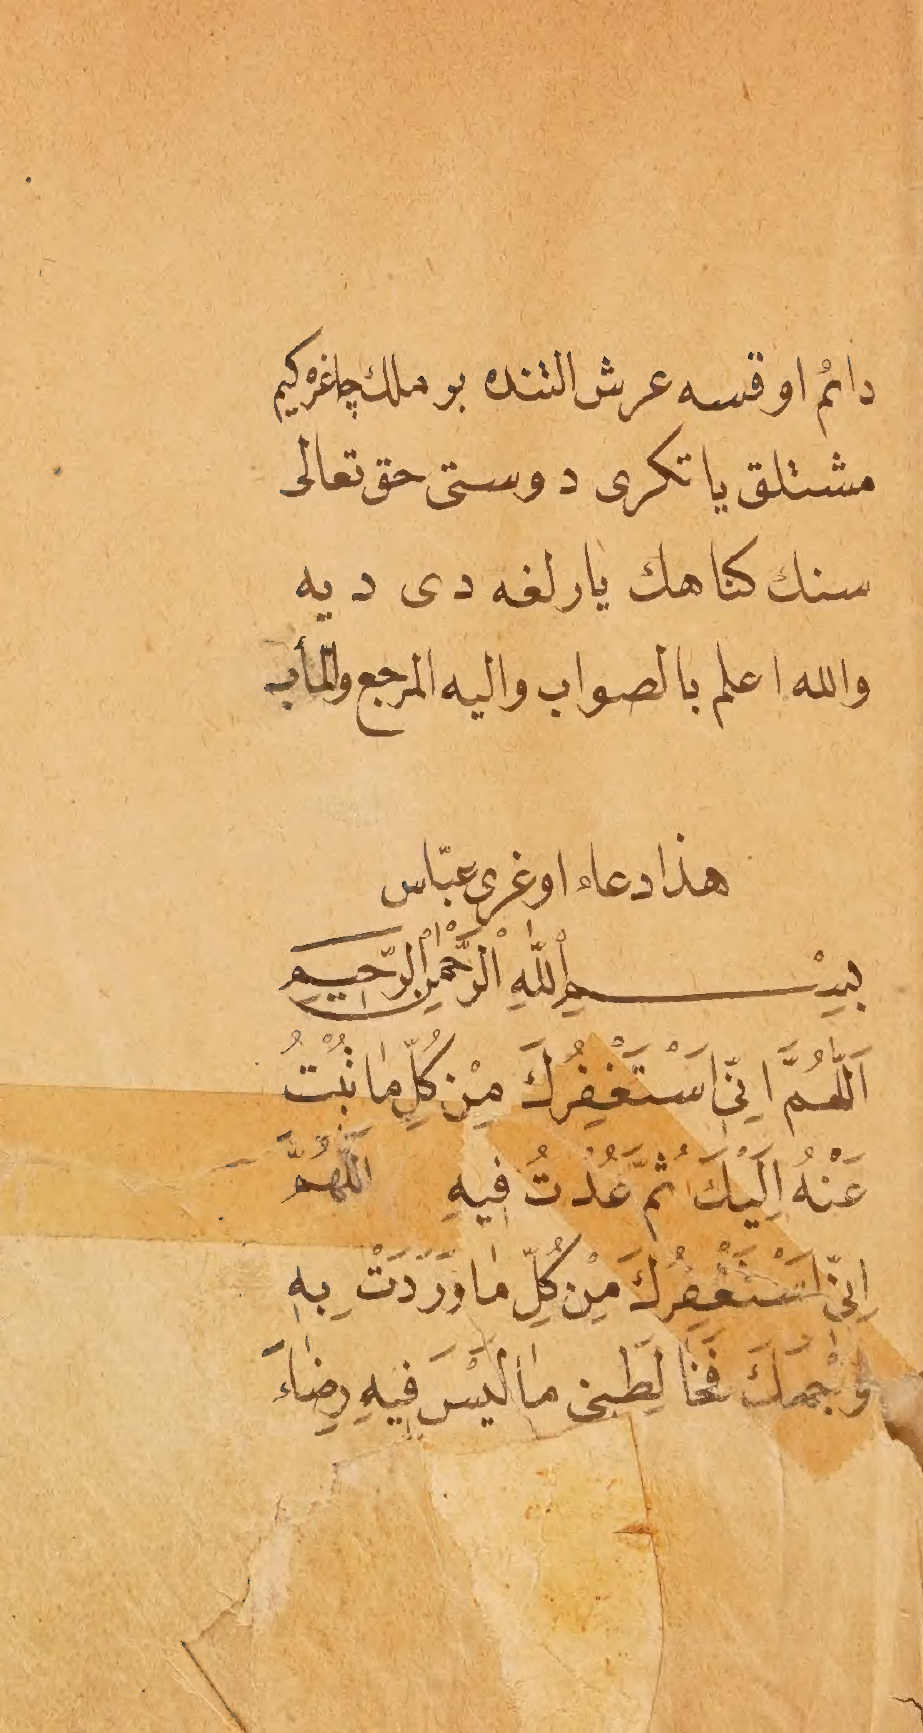 دائم اوقسه عرش التنده بر ملك چاغره كيم
مشتلق يا تكرى دوستى حق تعالى
سنك كناهك يارلغه دى ديه
والله اعلم بالصواب واليه المرجع والمأب
هذا دعاء اوغرى عبّاس
بِسْمِ اللّٰهِ الرَّحْمٰنِ الرَّحِيمِ
اَللّٰهُمَّ اِنِّى اَسْتَغْفِرُكَ مِنْ كُلِّ مٰا تُبْتُ
عَنْهُ اِلَيْكَ ثُمَّ عُدْتُ فِيهِ اَللّٰهُمَّ
اِنِّى اَسْتَغْفِرُكَ مِنْ كُلِّ مٰا وَرَدَتْ بِهِ
وَجْهَكَ فَخَالَطَنِى مٰا لَيْسَ فِيهِ رِضٰاءَ